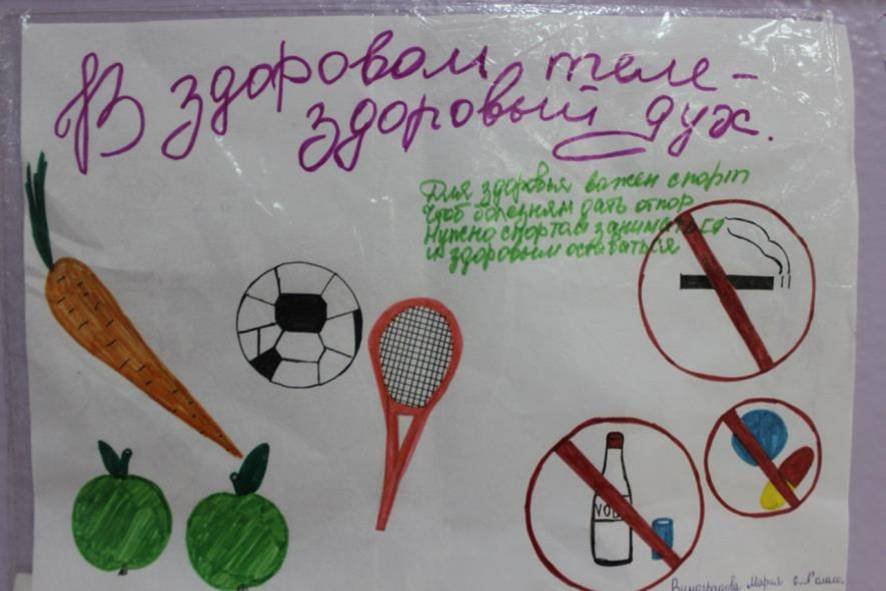 В здоровом теле -
здоровый дух.
Для здоровья важен спорт
Чтоб болезням дать отпор
Нужно спортом заниматься
и здоровым оставаться
VOD
Виноградова Мария